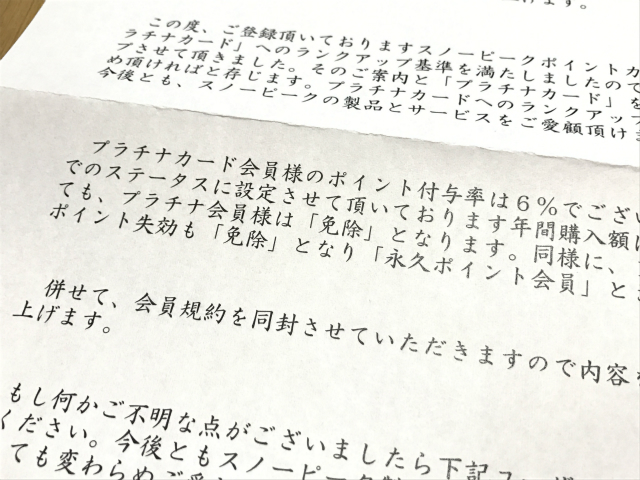 上げます。
この度、ご登録頂いておりますスノーピークポイントカ
ラチナカード」へのランクアップ基準を満たしましたので
プさせて頂きました。そのご案内と「プラチナカード」を
め頂ければと存じます。プラチナカードへのランクアップ
今後とも、スノーピークの製品とサービスをご愛顧頂けま
プラチナカード会員様のポイント付与率は6%でござい
でのステータスに設定させて頂いております。年間購入額に
ても、プラチナ会員様は「免除」となります。同様に、
ポイント失効も「免除」となり「永久ポイント会員」と
併せて、会員規約を同封させていただきますので内容
上げます。
もし何かご不明な点がございましたら下記
ください。今後ともスノーピーク
ても変わらぬご愛